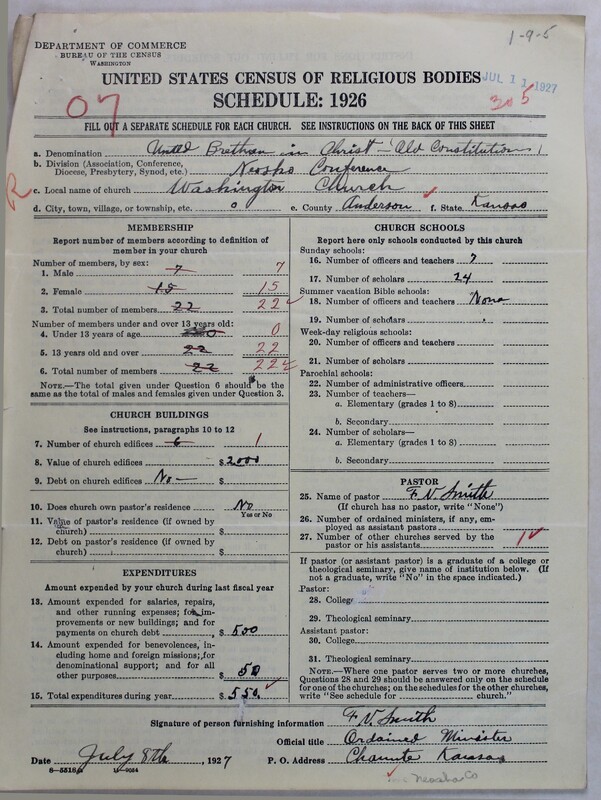 1-9-5
DEPARTMENT OF COMMERCE
BUREAU OF THE CENSUS
WASHINGTON
UNITED STATES CENSUS OF RELIGIOUS BODIES
JUL 11 1927
SCHEDULE: 1926
07
305
FILL OUT A SEPARATE SCHEDULE FOR EACH CHURCH. SEE INSTRUCTIONS ON THE BACK OF THIS SHEET
a. Denomination United Brethren in Christ - Old Constitution
b. Division (Association, Conference, Diocese, Presbytery, Synod, etc.) Neosho Conference
R
c. Local name of church Washington Church
d. City, town, village, or township, etc. o e. County Anderson f. State Kansas
MEMBERSHIP
Report number of members according to definition of
member in your church
Number of members, by sex:
1. Male 7 7
2. Female 15 15
3. Total number of members 22 22
Number of members under and over 13 years old:
4. Under 13 years of age 0
5. 13 years old and over 22 22
6. Total number of members 22 22
NOTE.—The total given under Question 6 should be
same as the total of males and females given under Question 3.
CHURCH BUILDINGS
See instructions, paragraphs 10 to 12
7. Number of church edifices 6 1
8. Value of church edifices $2000
9. Debt on church edifices No — $
10. Does church own pastor's residence No
Yes or No
11. Value of pastor's residence (if owned by
church) $
12. Debt on pastor's residence (if owned by
church) $
EXPENDITURES
Amount expended by your church during last fiscal year
13. Amount expended for salaries, repairs,
and other running expenses; for im-
provements or new buildings; and for
payments on church debt $500
14. Amount expended for benevolences, in-
cluding home and foreign missions; for
denominational support; and for all
other purposes $50
15. Total expenditures during year $550
CHURCH SCHOOLS
Report here only schools conducted by this church
Sunday schools:
16. Number of officers and teachers 7
17. Number of scholars 24
Summer vacation Bible schools:
18. Number of officers and teachers None
19. Number of scholars
Week-day religious schools:
20. Number of officers and teachers
21. Number of scholars
Parochial schools:
22. Number of administrative officers
23. Number of teachers—
a. Elementary (grades 1 to 8)
b. Secondary
24. Number of scholars—
a. Elementary (grades 1 to 8)
b. Secondary
PASTOR
25. Name of pastor F V. Smith
(If church has no pastor, write "None")
26. Number of ordained ministers, if any, em-
ployed as assistant pastors
27. Number of other churches served by the
pastor or his assistants 1
If pastor (or assistant pastor) is a graduate of a college or
theological seminary, give name of institution below. (If
not a graduate, write "No" in the space indicated.)
Pastor:
28. College
29. Theological seminary
Assistant pastor:
30. College
31. Theological seminary
NOTE.—Where one pastor serves two or more churches,
Questions 28 and 29 should be answered only on the schedule
for one of the churches; on the schedules for the other churches,
write "See schedule for church."
Signature of person furnishing information F. V. Smith
Official title Ordained Minister
Date July 8th, 1927 P. O. Address Chanute Kansas
Neosho Co